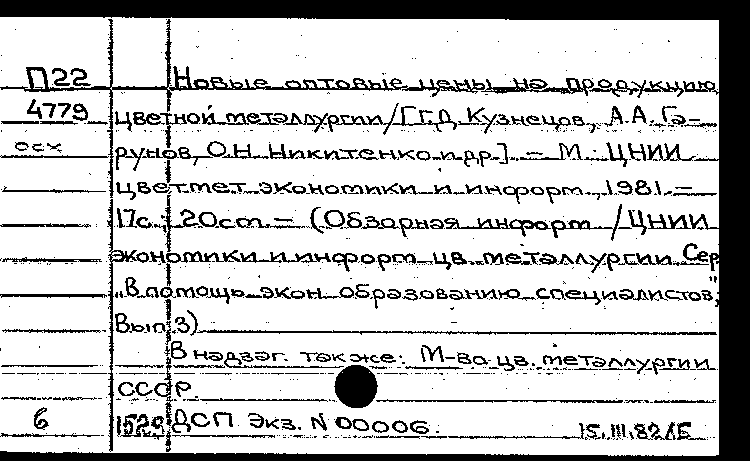 П22 Новые оптовые цены на продукцию
4779 цветной металлургии/[Г.Д. Кузнецов, А.А. Га-
осх рунов, О.Н. Никитенко и др.]. – М.: ЦНИИ
цветмет экономики и информ., 1981. –
17с.; 20cm. – (Обзорная информ. / ЦНИИ
экономики и информ. цв. металлургии. Сер.
„В помощь экон. образованию специалистов",
Вып.3)
В надзаг. также: М-во цв. металлургии
СССР.
6 1529 ДСП Экз. N 00006. 15.III.82